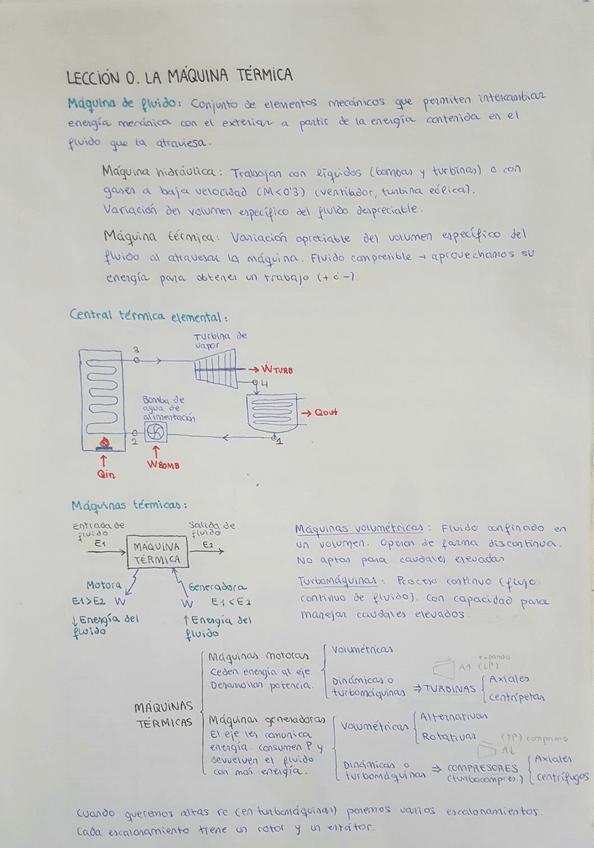 LECCIÓN 0. LA MÁQUINA TÉRMICA
Máquina de fluido: Conjunto de elementos mecánicos que permiten intercambiar
energía mecánica con el exterior a partir de la energía contenida en el
fluido que la atraviesa.
Máquina hidráulica: Trabajan con líquidos (bombas y turbinas) o con
gases a baja velocidad (M<0'3) (ventilador, turbina eólica).
Variación del volumen específico del fluido despreciable.
Máquina térmica: Variación apreciable del volumen específico del
fluido al atravesar la máquina. Fluido compresible → aprovechamos su
energía para obtener un trabajo (+ ó -).
Central térmica elemental:
Turbina de
vapor
3
→ WTURB
4
Bomba de
agua de
alimentación
→ Qout
2
1
Qin
WBOMB
Máquinas térmicas:
Entrada de
fluido
E1
MÁQUINA
TÉRMICA
Salida de
fluido
E2
Motora
E1>E2 W
↓Energía del
fluido
Generadora
W E1<E2
↑Energía del
fluido
Máquinas volumétricas: Fluido confinado en
un volumen. Operan de forma discontinua.
No aptas para caudales elevados
Turbomáquinas: Proceso continuo (flujo
continuo de fluido). Con capacidad para
manejar caudales elevados.
MÁQUINAS
TÉRMICAS
Máquinas motoras
Ceden energía al eje
Desarrollan potencia.
Volumétricas
Dinámicas o
turbomáquinas ⇒ TURBINAS
expando
A↑ (↓P)
Axiales
Centrípetas
Máquinas generadoras
El eje les comunica
energía. Consumen P y
devuelven el fluido
con más energía.
Volumétricas
Alternativas
Rotativas
Dinámicas o
turbomáquinas ⇒ COMPRESORES
(turbocompres.)
(↑P) comprimo
A↓
Axiales
Centrífugos
Cuando queremos altas rc (en turbomáquinas) ponemos varios escalonamientos.
Cada escalonamiento tiene un rotor y un estátor.